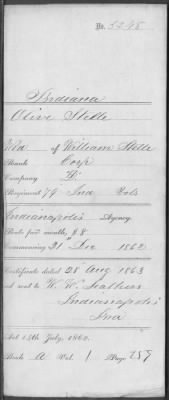 No. 5248
Indiana
Olive Stelle
Wid of William Stelle
Rank Corp
Company H
Regiment 79 Ind Vols
Indianapolis Agency.
Rate per month, $ 8
Commencing 31 Dec 1862
Certificate dated 28 Aug 1863
and sent to W. W.
Indianapolis
Ind
Act 14th July, 1862.
Book A Vol. 1 Page 257